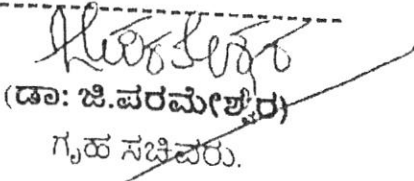 (ಡಾ: ಜಿ.ಪರಮೇಶ್ವರ)
ಗೃಹ ಸಚಿವರು.